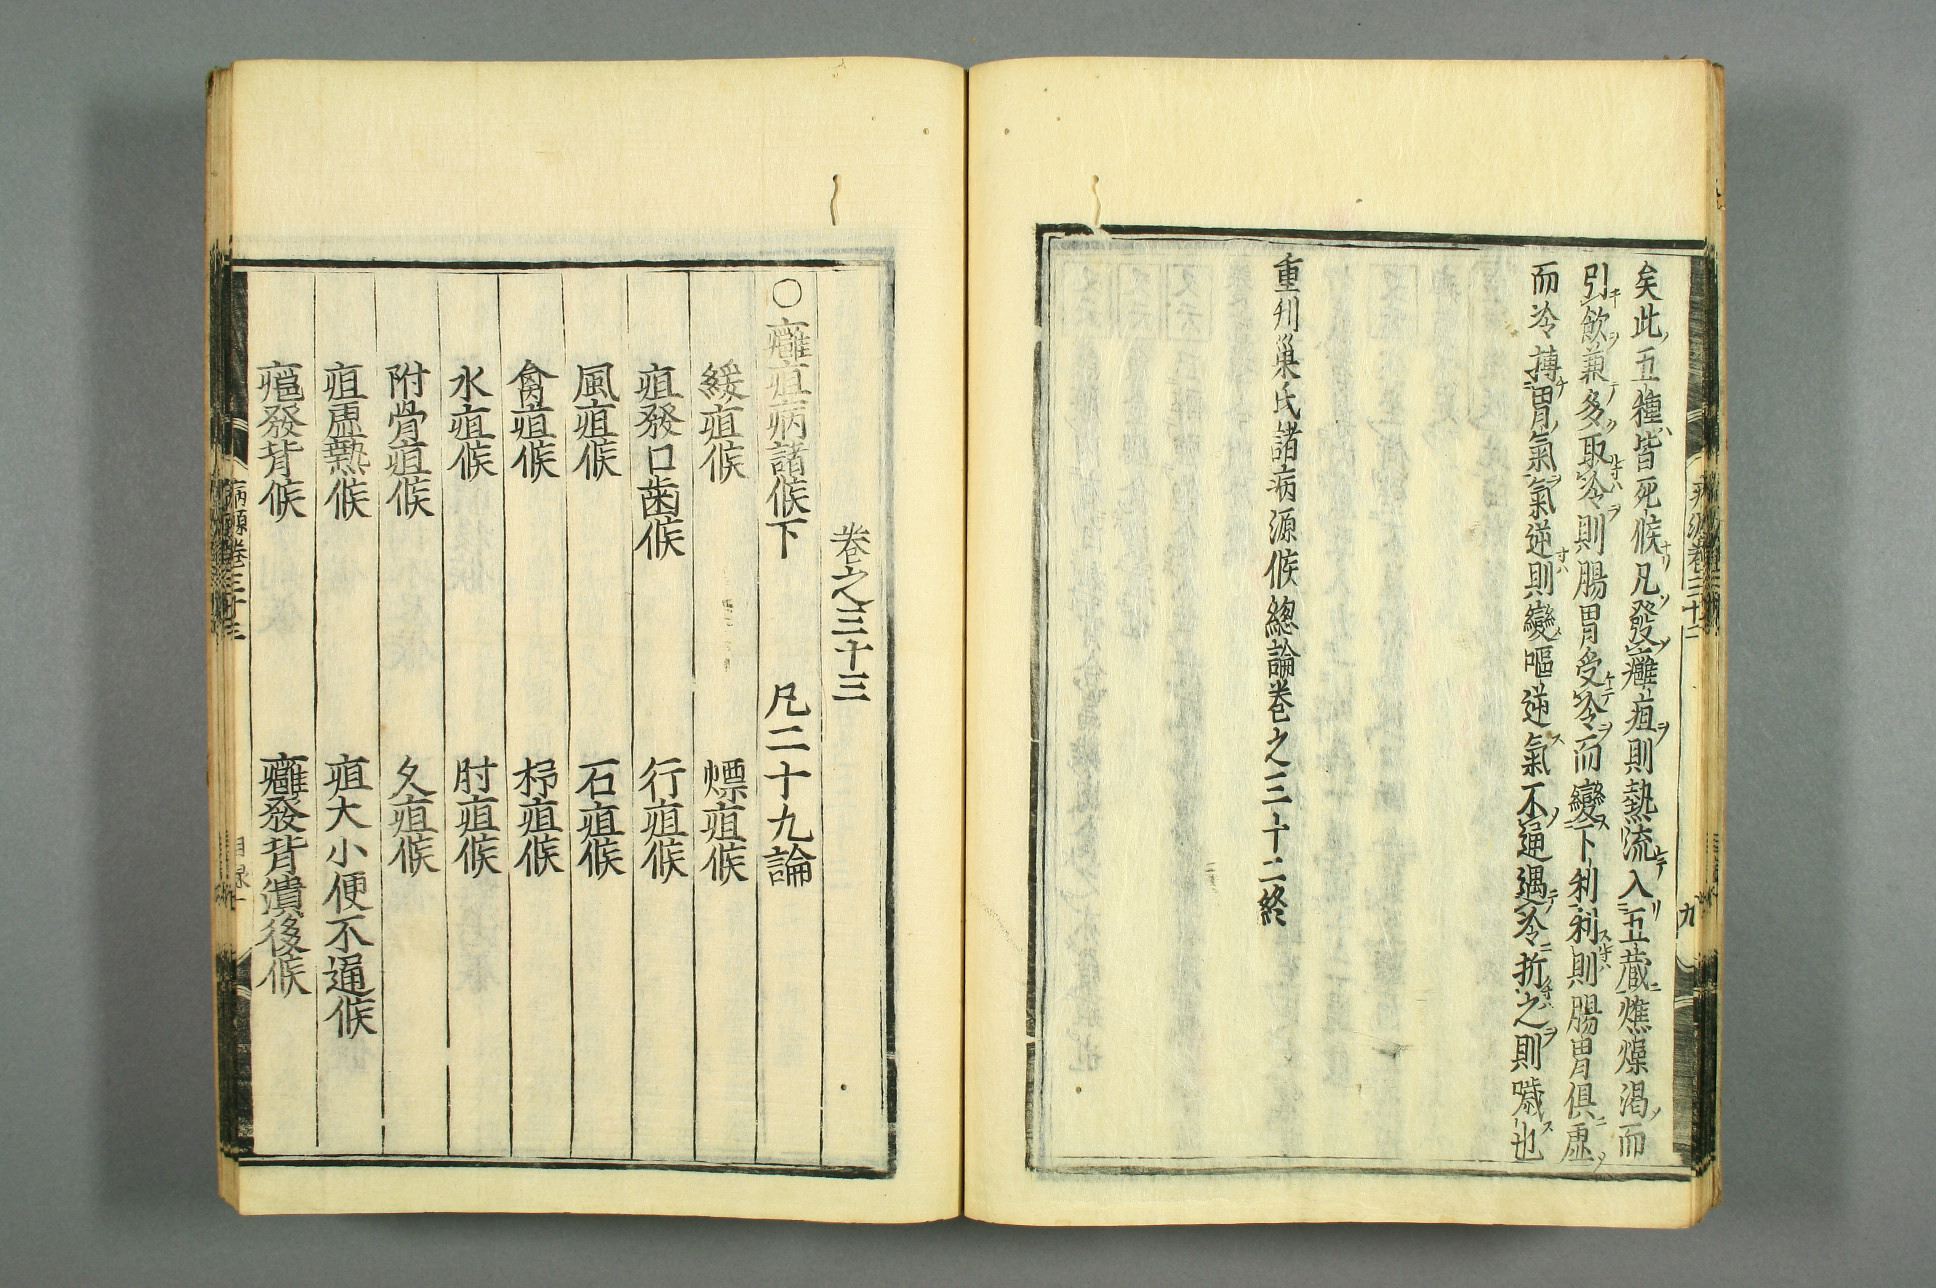 矣此五種皆死候凡發癰疽則熱流入五藏燋燥渴而
引飲兼多取冷則腸胃受冷而變下利利則腸胃俱虛
而冷搏胃氣氣逆則變嘔逆氣不通遇冷折之則噦也
重刋巢氏諸病源候總論卷之三十二終
九
卷之三十三
○癰疽病諸候下 凡二十九論
緩疽候 熛疽候
疽發口齒候 行疽候
風疽候 石疽候
禽疽候 杼疽候
水疽候 肘疽候
附骨疽候 久疽候
疽虛熱候 疽大小便不通候
瘟發背候 癰發背潰後候
病源卷三十三 目录一